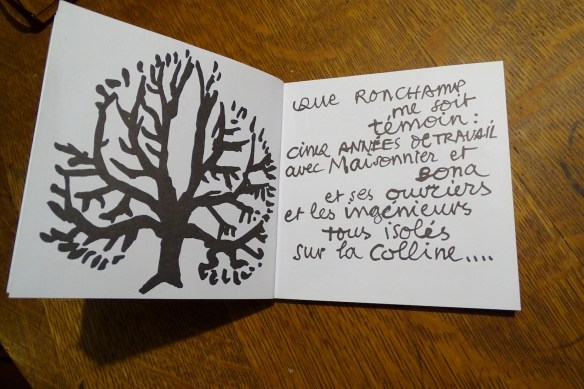 Que RONCHAMP
me soit
témoin :
cinq ANNÉES DE TRAVAIL
avec Maisonnier et
Bona
et ses ouvriers
et les ingénieurs
tous isolés
sur la colline....